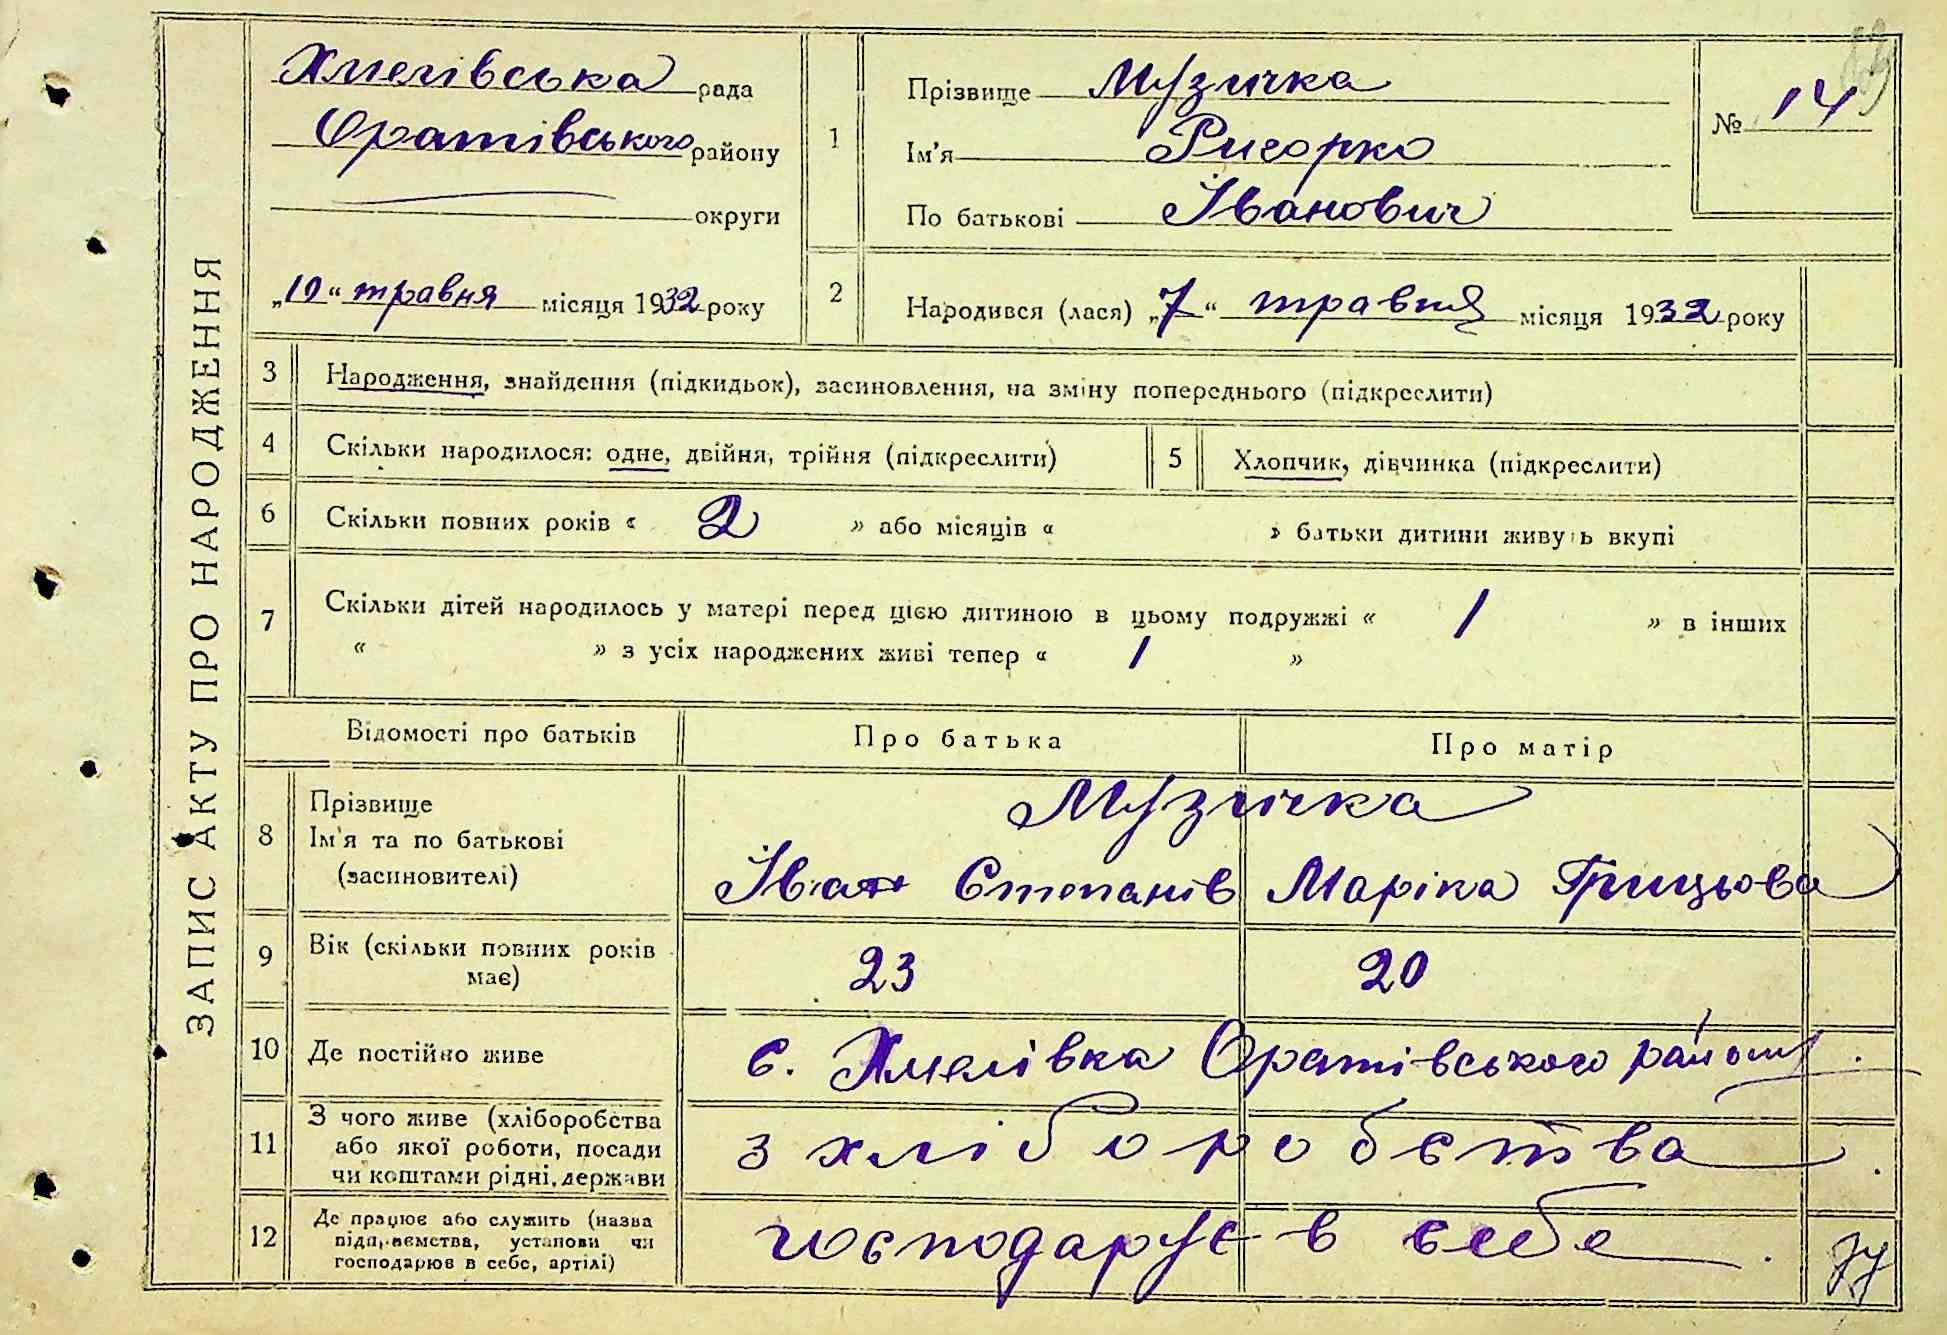 ЗАПИС АКТУ ПРО НАРОДЖЕННЯ
Хмелівська рада
Оратівського району
округи
„10“ травня місяця 1932 року
1
Прізвище Музичка
Ім'я Ригорко
По батькові Іванович
№ 14
2
Народився (лася) „7“ травня місяця 1932 року
3 Народження, знайдення (підкидьок), засиновлення, на зміну попереднього (підкреслити)
4 Скільки народилося: одне, двійня, трійня (підкреслити)
5 Хлопчик, дівчинка (підкреслити)
6 Скільки повних років « 2 » або місяців « » батьки дитини живуть вкупі
7 Скільки дітей народилось у матері перед цією дитиною в цьому подружжі « 1 » в інших
« » з усіх народжених живі тепер « 1 »
Відомості про батьків Про батька Про матір
8 Прізвище Музичка
Ім'я та по батькові Іван Степанів Маріка Грицьова
(засиновителі)
9 Вік (скільки повних років 23 20
має)
10 Де постійно живе с. Хмелівка Оратівського району.
11 З чого живе (хліборобства
або якої роботи, посади з хліборобства.
чи коштами рідні, держави
12 Де працює або служить (назва
підприємства, установи чи господарує в себе.
господарює в себе, артілі)